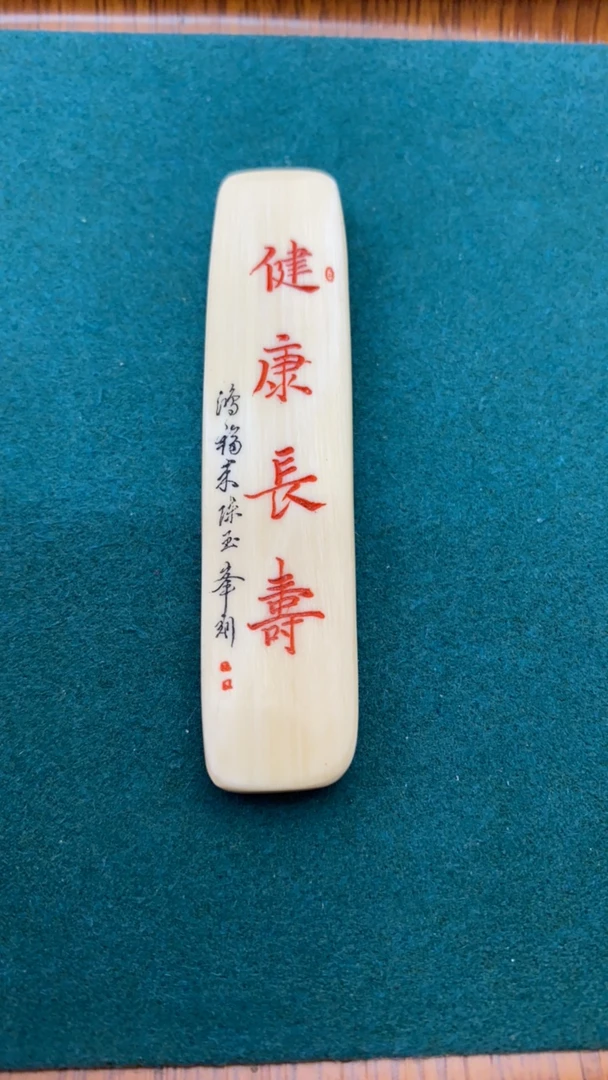 健康長壽
鴻福來陳玉峯刻